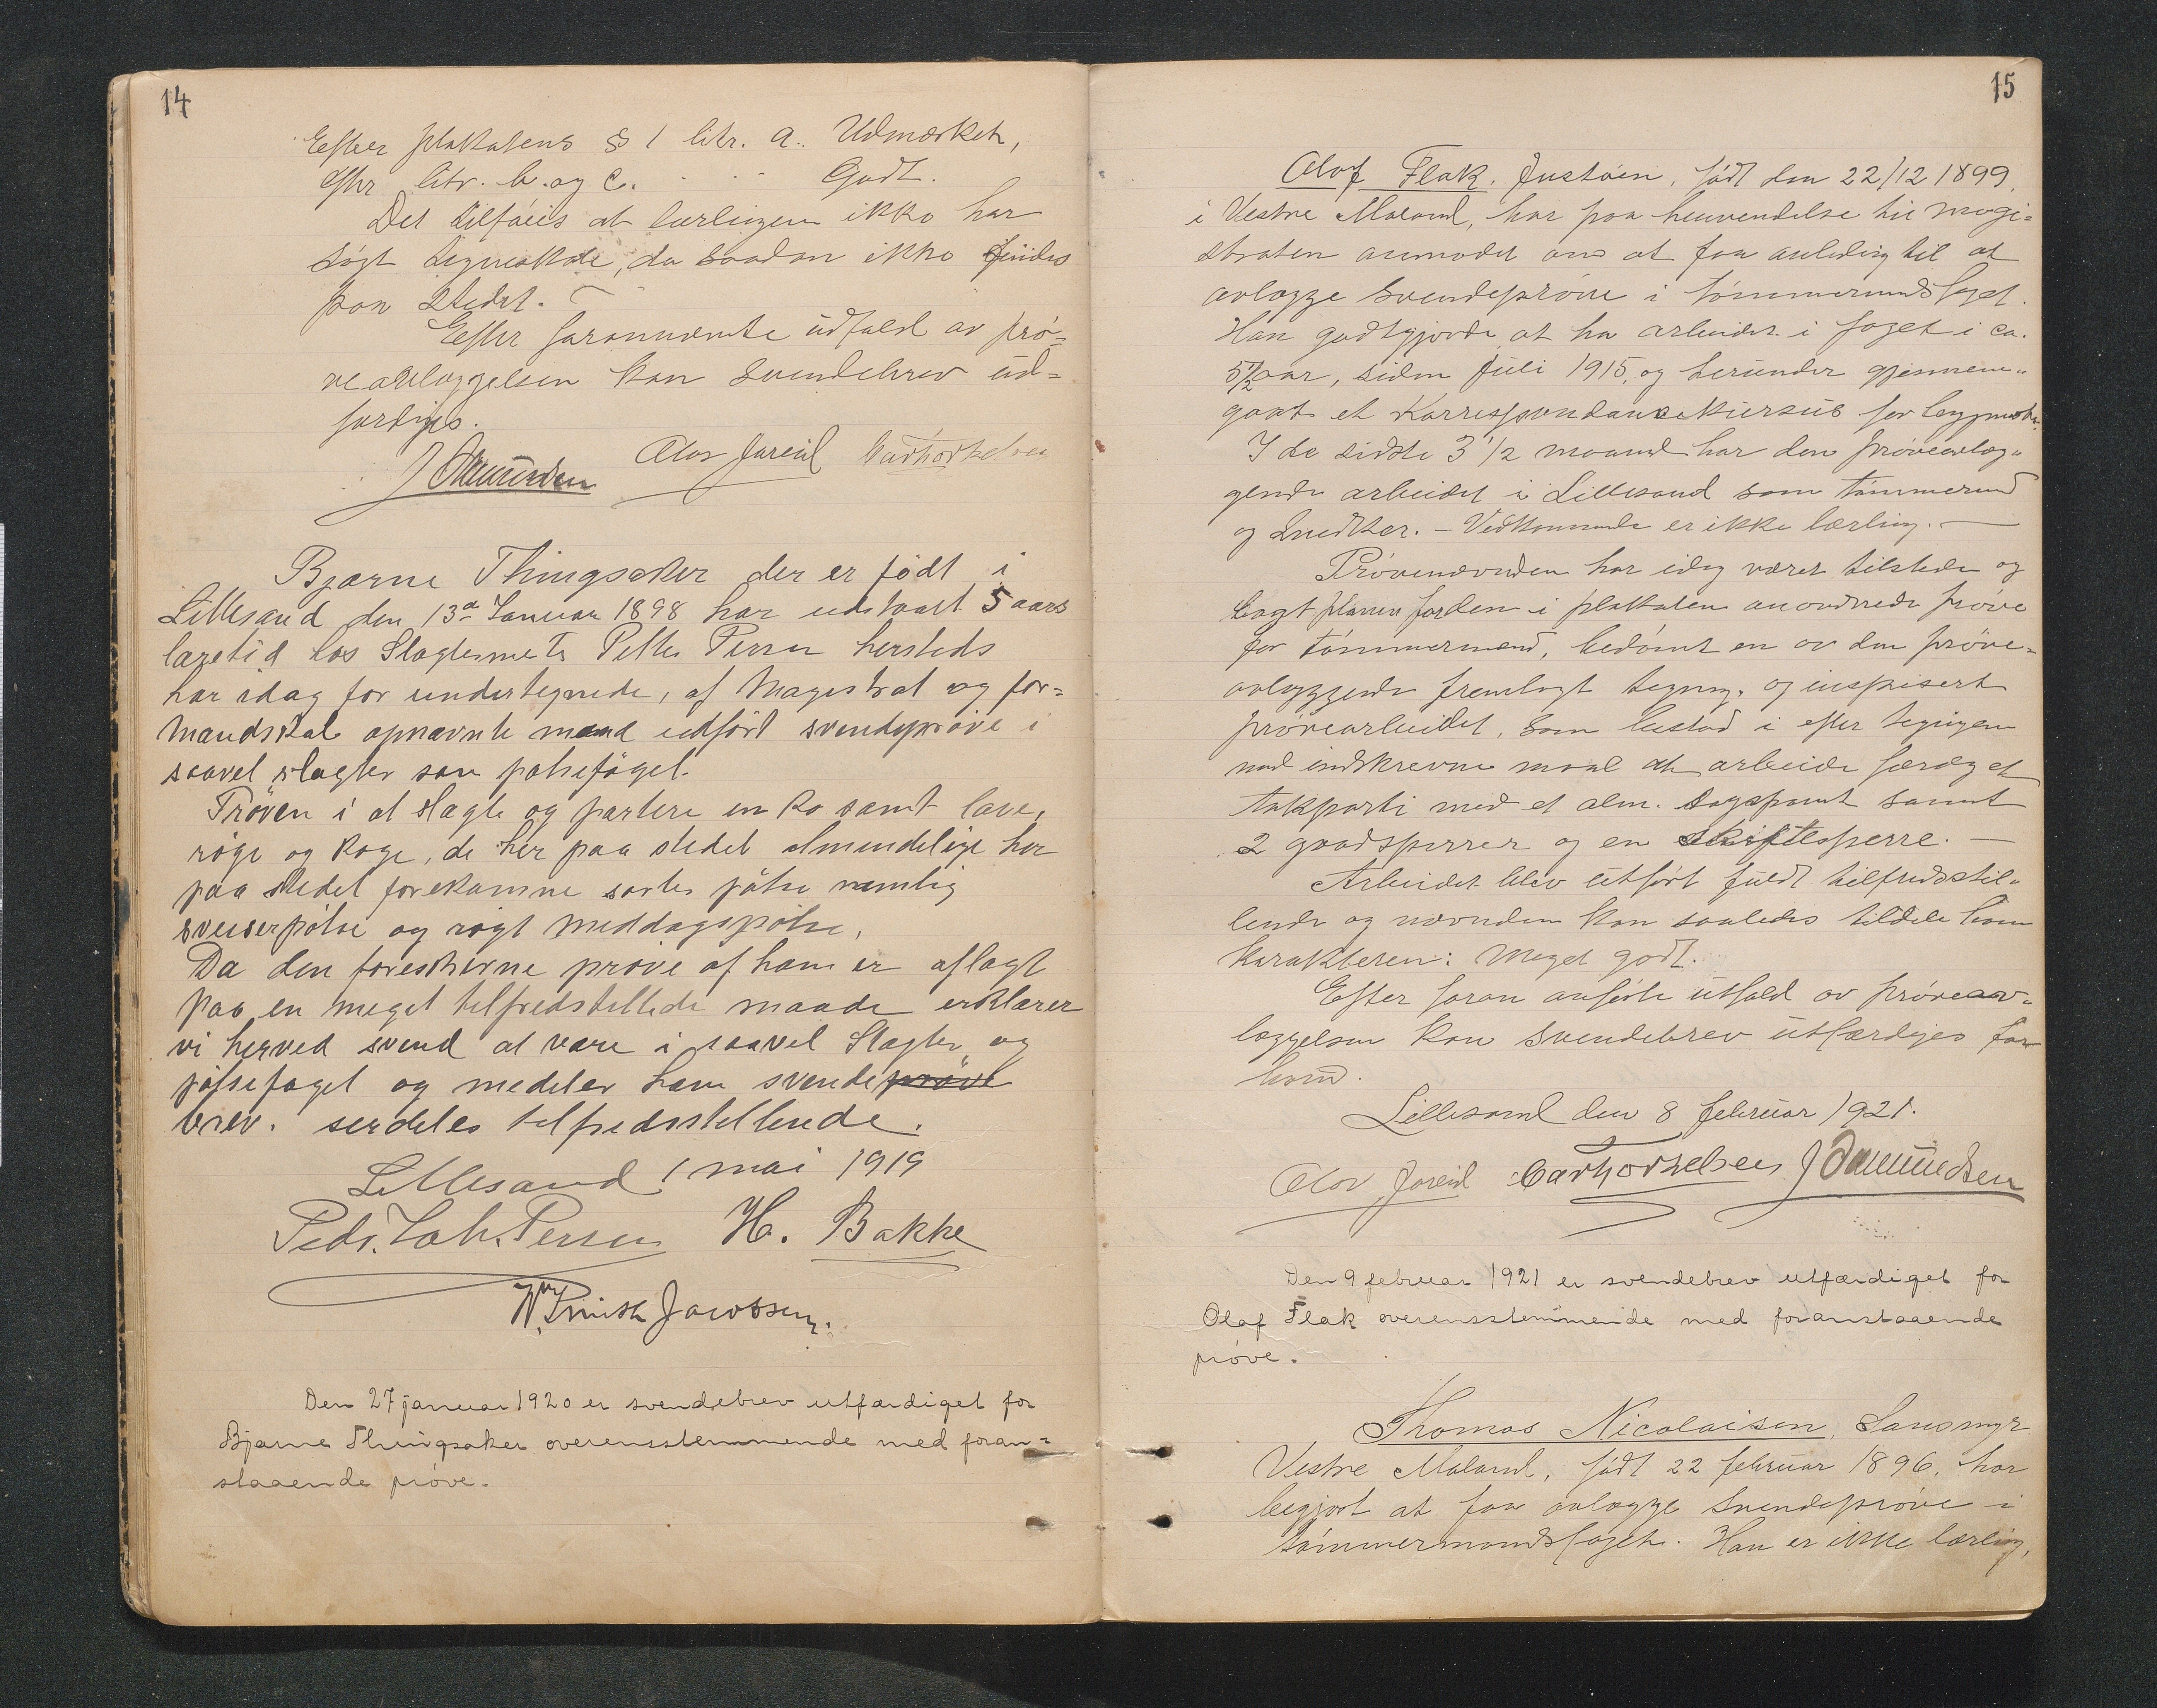 14
Efter plakatens § 1 litr. a. Udmærket,
efter litr. b. og c. " " Godt.
Det tilføies at lærlingen ikke har
søgt tegneskole, da saadan ikke findes
paa stedet.
Efter forannævnte udfald av prø=
veavlæggelsen kan svendebrev ud=
færdiges.
J Amundsen Olav Jareid Carthorkelsen
Bjarne Thingsaker der er født i
Lillesand den 13de Januar 1898 har udstaaet 5 aars
læretid hos Slagtermetr Petter Persen hersteds
har idag for undertegnede, af Magistrat og for=
mandskab opnævnte mænd udført svendeprøve i
saavel slagter som pølsefaget.
Prøven i at slagte og partere en ko samt lave,
røge og koge, de her paa stedet almindelige her
paa stedet forekomne sorter pølse nemlig
sveiserpølse og røgt meddagspølse,
Da den foreskrevne prøve af ham er aflagt
paa en meget tilfredstillede maade erklærer
vi herved svend at være i saavel Slagter og
pølsefaget og medeler ham svendeprøve
brev. serdeles tilfredsstillende.
Lillesand 1 mai 1919
Pedr. Joh. Persen H. Bakke
Wm Smith Jacobsen.
Den 27 januar 1920 er svendebrev utfærdiget for
Bjarne Thingsaker overensstemmende med foran=
staaende prøve.
15
Olaf Flak, Justøen, født den 22/12 1899,
i Vestre Moland, har paa henvendelse til magi=
straten anmodet om at faa anledning til at
avlægge svendeprøve i tømmermandsfaget.
Han godtgjorde at ha arbeidet i faget i ca.
5 1/2 aar, siden Juli 1915, og herunder gjennem=
gaat et Korrespondansekursus for bygmestre.
I de sidste 3 1/2 maaned har den prøveavlæg=
gende arbeidet i Lillesand som tømmermand
og snedker. – Vedkommende er ikke lærling. –
Prøvenævnden har idag været tilstede og
lagt planen for den i plakaten anordnede prøve
for tømmermænd, bedømt en av den prøve=
avlæggende fremlagt tegning, og inspisert
prøvearbeidet, som bestod i efter tegningen
med indskrevne maal at arbeide færdig et
takparti med et alm. tagspænt samt
2 gradsperrer og en skiftesperre. –
Arbeidet blev utført fuldt tilfredsstil=
lende og nævnden kan saaledes tildele ham
karakteren: Meget godt.
Efter foran anførte utfald av prøveav=
læggelsen kan svendebrev utfærdiges for
ham.
Lillesand den 8 februar 1921.
Olav Jareid Carthorkelsen J Amundsen
Den 9 februar 1921 er svendebrev utfærdiget for
Olaf Flak overensstemmende med foranstaaende
prøve.
Thomas Nicolaisen, Langmyr
Vestre Moland, født 22 februar 1896, har
begjært at faa avlægge svendeprøve i
tømmermandsfaget. Han er ikke lærling,